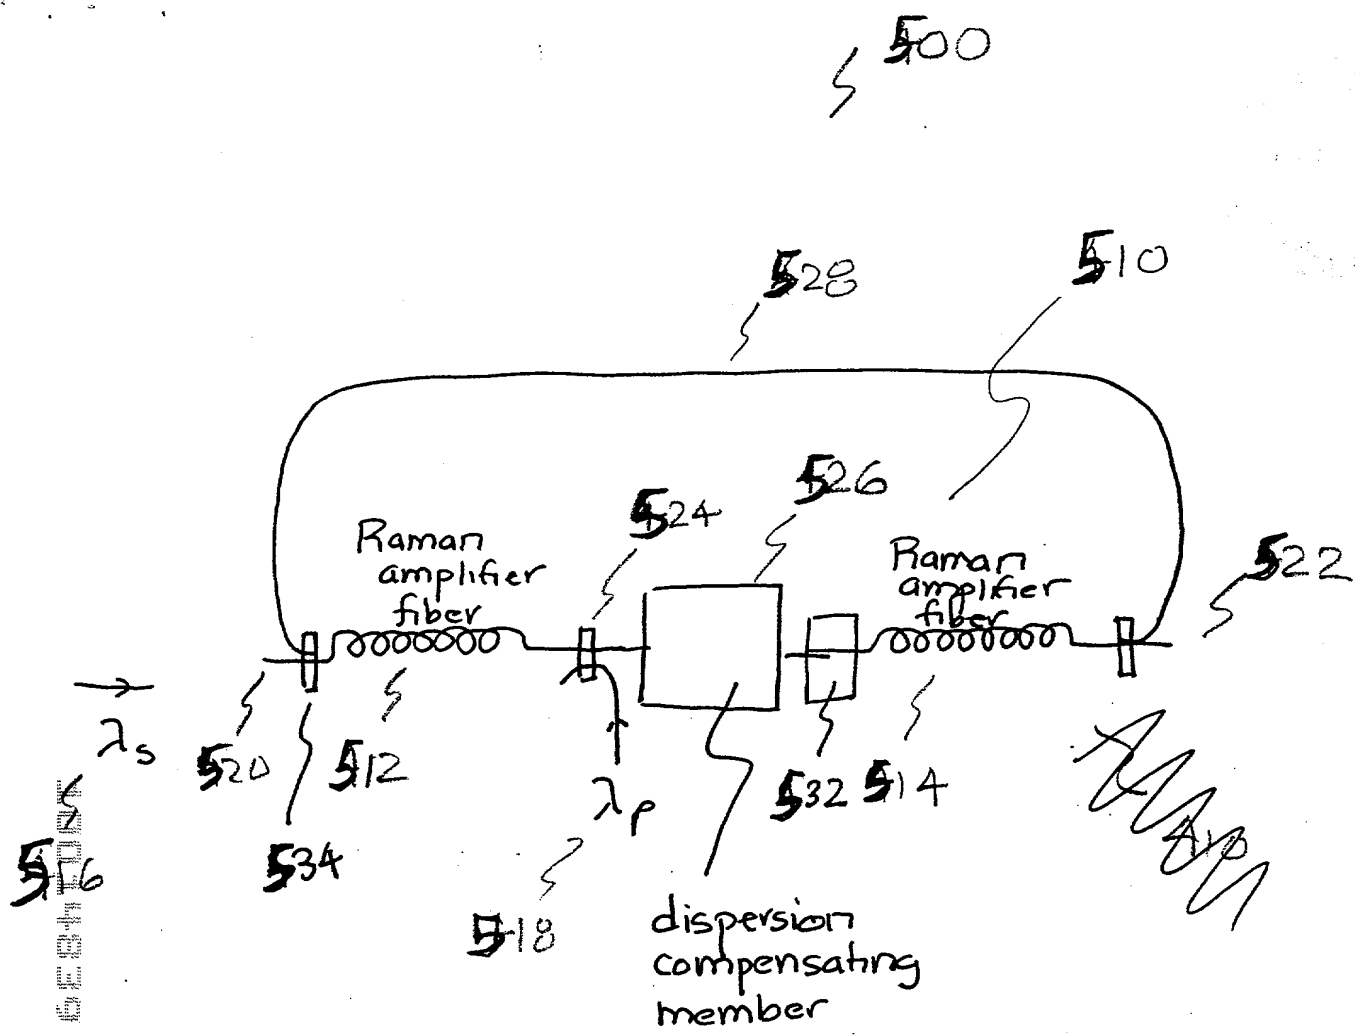 500
510
528
526
524
Raman
amplifier
fiber
Raman
amplifier
fiber
522
λs
520
512
λp
532
514
516
534
518
dispersion
compensating
member